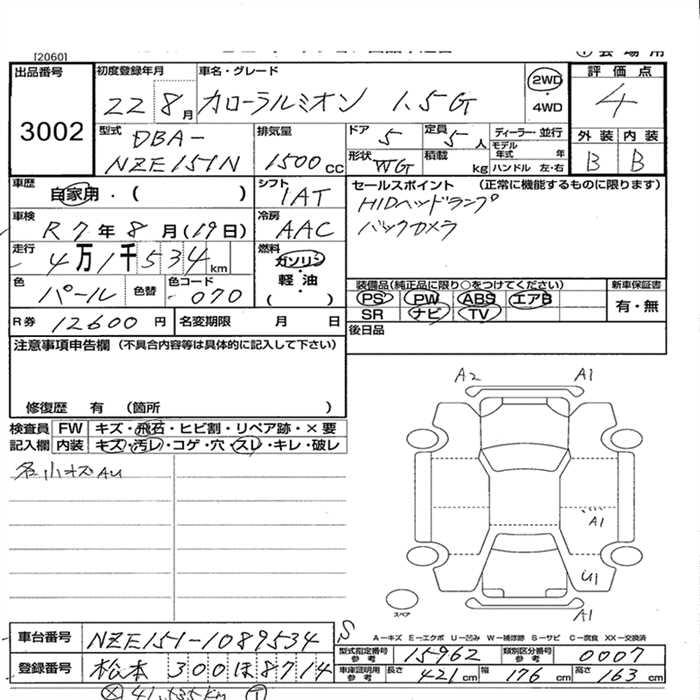 [2060]
出品番号
3002
初度登録年月
22 8月
車名・グレード
カローラルミオン 1.5G
2WD
・
4WD
評価点
4
外装 内装
B B
型式
DBA-
NZE151N
排気量
1500cc
ドア
5
定員
5人
形状
WG
積載
kg
ディーラー・並行
モデル年式 年
ハンドル 左・右
車歴
自家用・( )
シフト
IAT
車検
R7年8月(19日)
冷房
AAC
走行
4万1千534km
燃料
ガソリン
・
軽油
( )
色
パール
色替
色コード
070
R券 12600円
名変期限 月 日
セールスポイント (正常に機能するものに限ります)
HIDヘッドランプ
バックカメラ
装備品(純正品に限り○をつけてください)
PS PW ABS エアB
SR ナビ TV
新車保証書
有・無
後日品
注意事項申告欄(不具合内容等は具体的に記入して下さい)
修復歴 有 (箇所 )
検査員 FW キズ・飛石・ヒビ割・リペア跡・×要
記入欄 内装 キズ・汚レ・コゲ・穴・スレ・キレ・破レ
各小キズAU
A2 A1
A1
U1
A1
スペア
A-キズ E-エクボ U-凹み W-補修跡 S-サビ C-腐食 XX-交換済
車台番号 NZE151-1089534
S
登録番号 松本 300ほ8714
型式指定番号
参考
15962
類別区分番号
参考
0007
車庫証明用
参考
長さ 421cm 幅 176cm 高さ 163cm